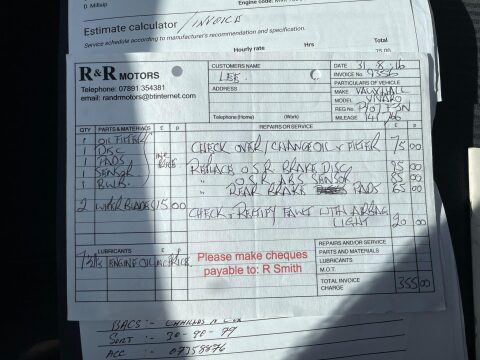 D. Millsip
Engine code:
Estimate calculator / INVOICE
Service schedule according to manufacturer's recommendation and specification.
Hourly rate Hrs Total
75.00
R&R MOTORS
Telephone: 07891 354381
email: randrmotors@btinternet.com
CUSTOMERS NAME
LEE.
ADDRESS
Telephone (Home) (Work)
DATE 31.8.16
INVOICE No. 9356
PARTICULARS OF VEHICLE
MAKE VAUXHALL
MODEL VIVARO
REG No.
MILEAGE
QTY PARTS & MATERIALS £ P REPAIRS OR SERVICE £ P
1 OIL FILTER
1 DISC
1 PADS
1 SENSOR
1 BULB.
INC PRICE
2 WIPER BLADES 15 00
CHECK OVER / CHANGE OIL & FILTER 75 00
REPLACE O.S.R BRAKE DISC 95 00
" O.S.R ABS SENSOR 85 00
" REAR BRAKE PADS 65 00
CHECK & RECTIFY FAULT WITH AIRBAG
LIGHT 20 00
LUBRICANTS £ P
ENGINE OIL INC PRICE
Please make cheques
payable to: R Smith
REPAIRS AND/OR SERVICE
PARTS AND MATERIALS
LUBRICANTS
M.O.T.
TOTAL INVOICE
CHARGE 355 00
BACS :-
SORT :- 30-90-79
ACC :- 07358876